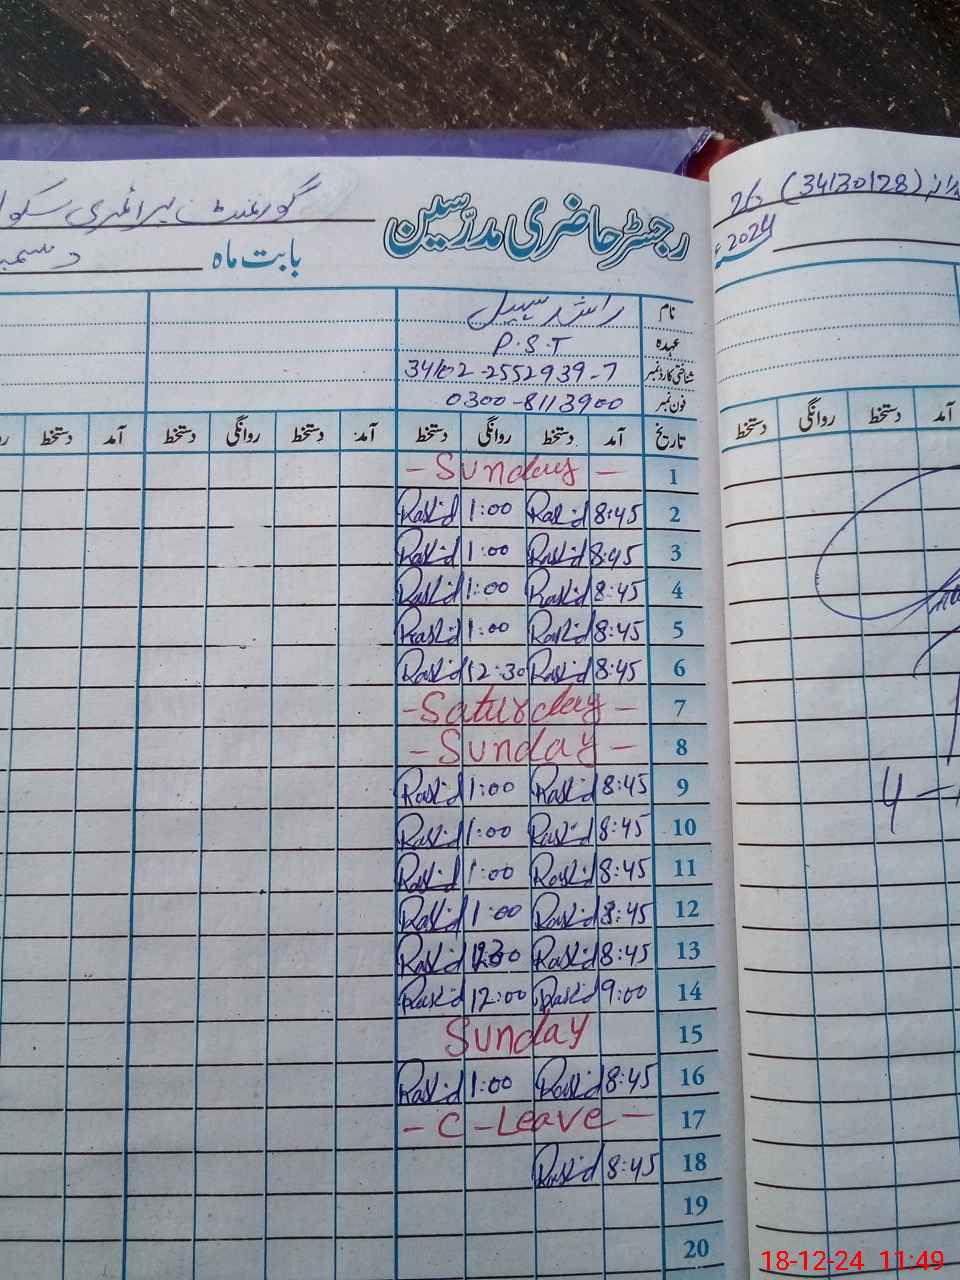 رجسٹر حاضری مدرسین گورنمنٹ پرائمری سکول
26 (34130128)
بابت ماہ دسمبر
2024
نام راشد سہیل
عہدہ P.S.T
شناختی کارڈ نمبر 34102-2552939-7
فون نمبر 0300-8113900
تاریخ آمد دستخط روانگی دستخط آمد دستخط روانگی دستخط آمد دستخط
آمد دستخط روانگی دستخط
1 - Sunday -
2 8:45 Rashid 1:00 Rashid
3 8:45 Rashid 1:00 Rashid
4 8:45 Rashid 1:00 Rashid
5 8:45 Rashid 1:00 Rashid
6 8:45 Rashid 12:30 Rashid
7 - Saturday -
8 - Sunday -
9 8:45 Rashid 1:00 Rashid
10 8:45 Rashid 1:00 Rashid
11 8:45 Rashid 1:00 Rashid
12 8:45 Rashid 1:00 Rashid
13 8:45 Rashid Rashid
14 9:00 Rashid 12:00 Rashid
15 Sunday
16 8:45 Rashid 1:00 Rashid
17 - C - Leave -
18 8:45 Rashid
19
20
18-12-24 11:49